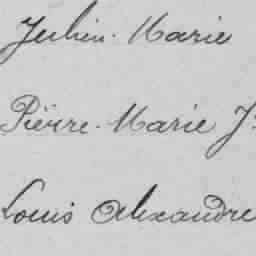 Julien. Marie
Pierre. Marie J
Louis Alexandre